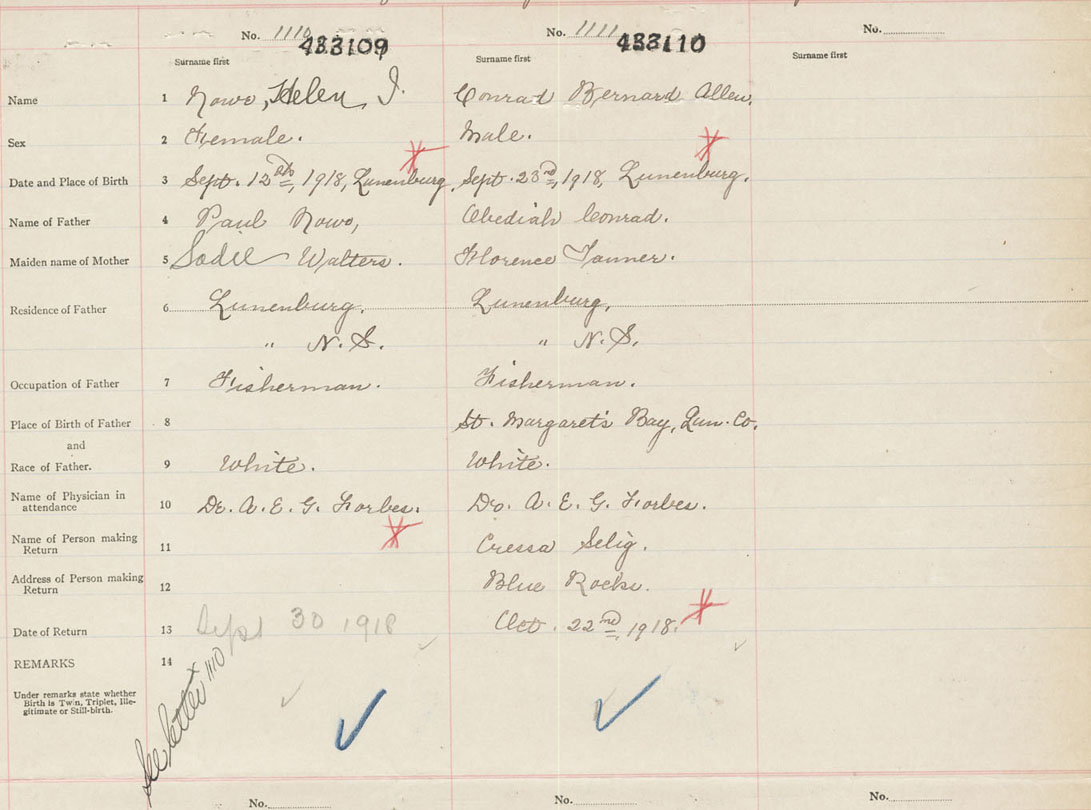 No. 1110 433109 No. 1111 433110 No.
Surname first Surname first Surname first
Name 1 Nowe, Helen I. Conrad Bernard Allen.
Sex 2 Female. Male.
Date and Place of Birth 3 Sept. 12th, 1918, Lunenburg, Sept. 23rd, 1918, Lunenburg.
Name of Father 4 Paul Nowe, Obediah Conrad.
Maiden name of Mother 5 Sadie Walters. Florence Tanner.
Residence of Father 6 Lunenburg, Lunenburg,
" N.S. " N.S.
Occupation of Father 7 Fisherman. Fisherman.
Place of Birth of Father 8 St. Margaret's Bay, Lun. Co.
and
Race of Father. 9 White. White.
Name of Physician in
attendance 10 Dr. A. E. G. Forbes. Dr. A. E. G. Forbes.
Name of Person making
Return 11 Cressa Selig.
Address of Person making
Return 12 Blue Rocks.
Date of Return 13 Sept 30 1918 Oct. 22nd, 1918.
REMARKS 14
Under remarks state whether
Birth is Twin, Triplet, Ille-
gitimate or Still-birth.
See letter 1110
No. No. No.